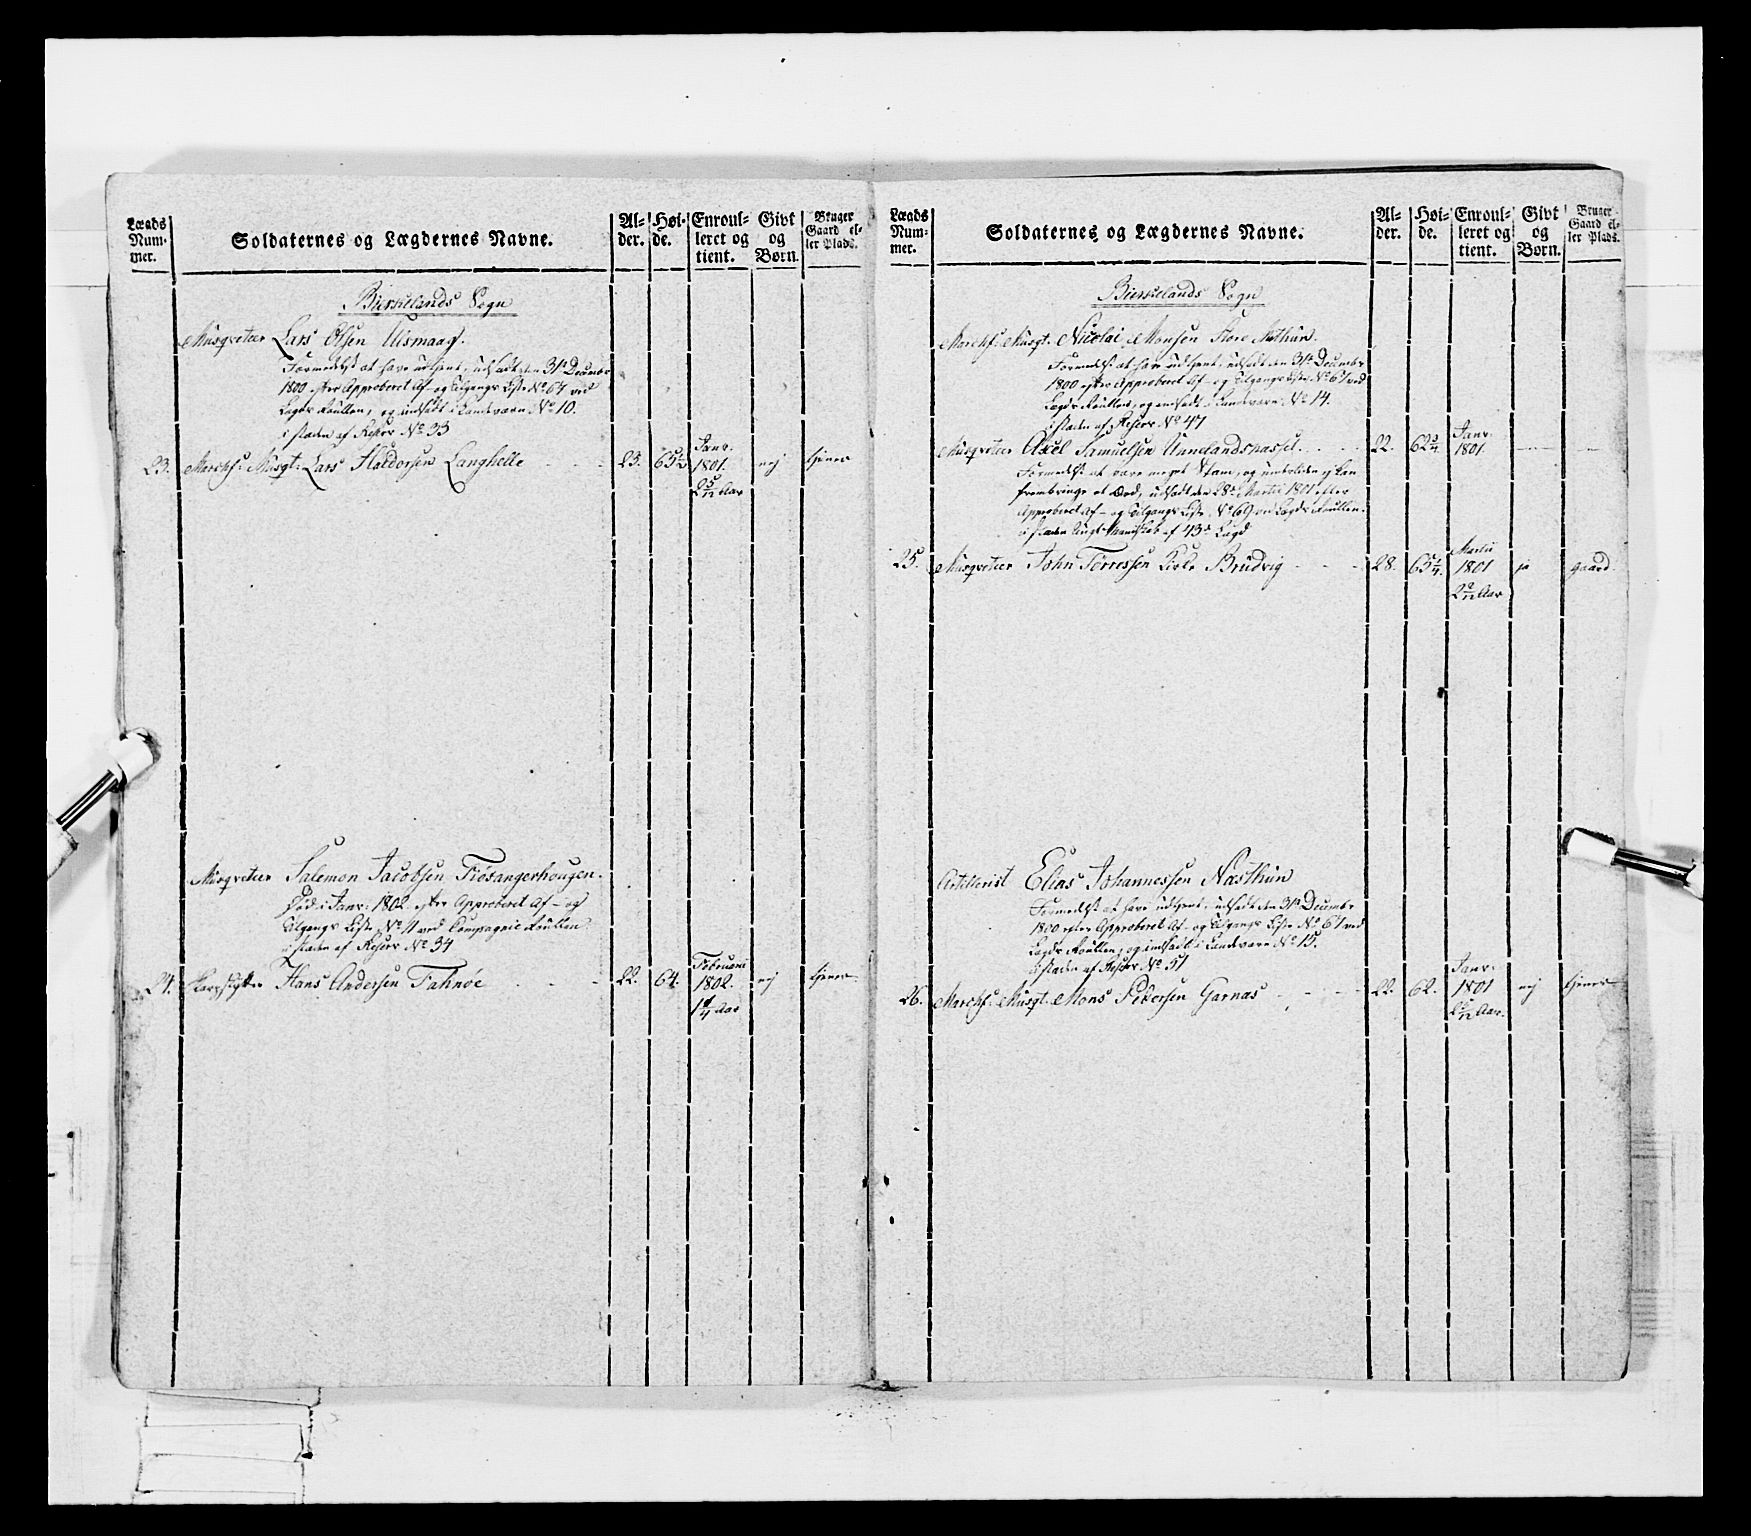 Lægds Num- mer. Soldaternes og Lægdernes Navne. Al- der. Høi- de. Enroul- leret og tient. Givt og Børn. Bruger Gaard el- ler Plads.
Birkelands Sogn
Musqveteer Lars Olsen Ulsmaag.
Formedelst at have udtient, udsadt den 31te Decembr
1800 efter Approberet Af- og Tilgangs Liste No 67 ved
Lægds Roullen, og indsadt i Landeværn No 10.
i stæden af Reserv No 33
23. Marchs: Musqt: Lars Haldorsen Langhelle 23. 65 1/2 Janv: 1801. nej tiener
2 5/12 Aar
Musqveteer Salemon Jacobsen Tiosangerhougen.
Død i Janv: 1802. efter Approberet Af- og
Tilgangs Liste No 71 ved Compagnie Roullen
i stæden af Reserv No 34
24. Hans Andersen Fahnøe 22. 64. Februari 1802. nej tiener
1 1/4 Aar
Lægds Num- mer. Soldaternes og Lægdernes Navne. Al- der. Høi- de. Enroul- leret og tient. Givt og Børn. Bruger Gaard el- ler Plads.
Birkelands Sogn
Marchs: Musqt: Nicolai Monsen Store Nathun.
Formedelst at have udtient, udsadt den 31te Decembr
1800 efter Approberet Af- og Tilgangs Liste No 67 ved
Lægds Roullen, og indsadt i Landeværn No 14.
i stæden af Reserv No 47
Musqveteer Axel Samuelsen Unnelandspasset. 22. 62 3/4 Janv: 1801.
Formedelst at være meget Stam, og umuelig ej kan
frembringe et Ord, udsadt den 28de Martii 1801 efter
Approberet Af- og Tilgangs Liste No 69 ved Lægds Roullen.
i stæden Ungt Mandskab af 43de Lægd
25. Musqveteer John Torressen Kirke Brudvig 28. 65 1/4. Martii 1801 ja gaard.
2 3/12 Aar
Artillerist Elias Johannessen Nasthun
Formedelst at have udtient, udsadt den 31te Decembr
1800 efter Approberet Af- og Tilgangs Liste No 67 ved
Lægds Roullen, og indsadt i Landeværn No 15.
i stæden af Reserv No 51
26. Marchs: Musqt: Mons Pedersen Garnas 22. 62. Janv: 1801 nej tiener
2 5/12 Aar.